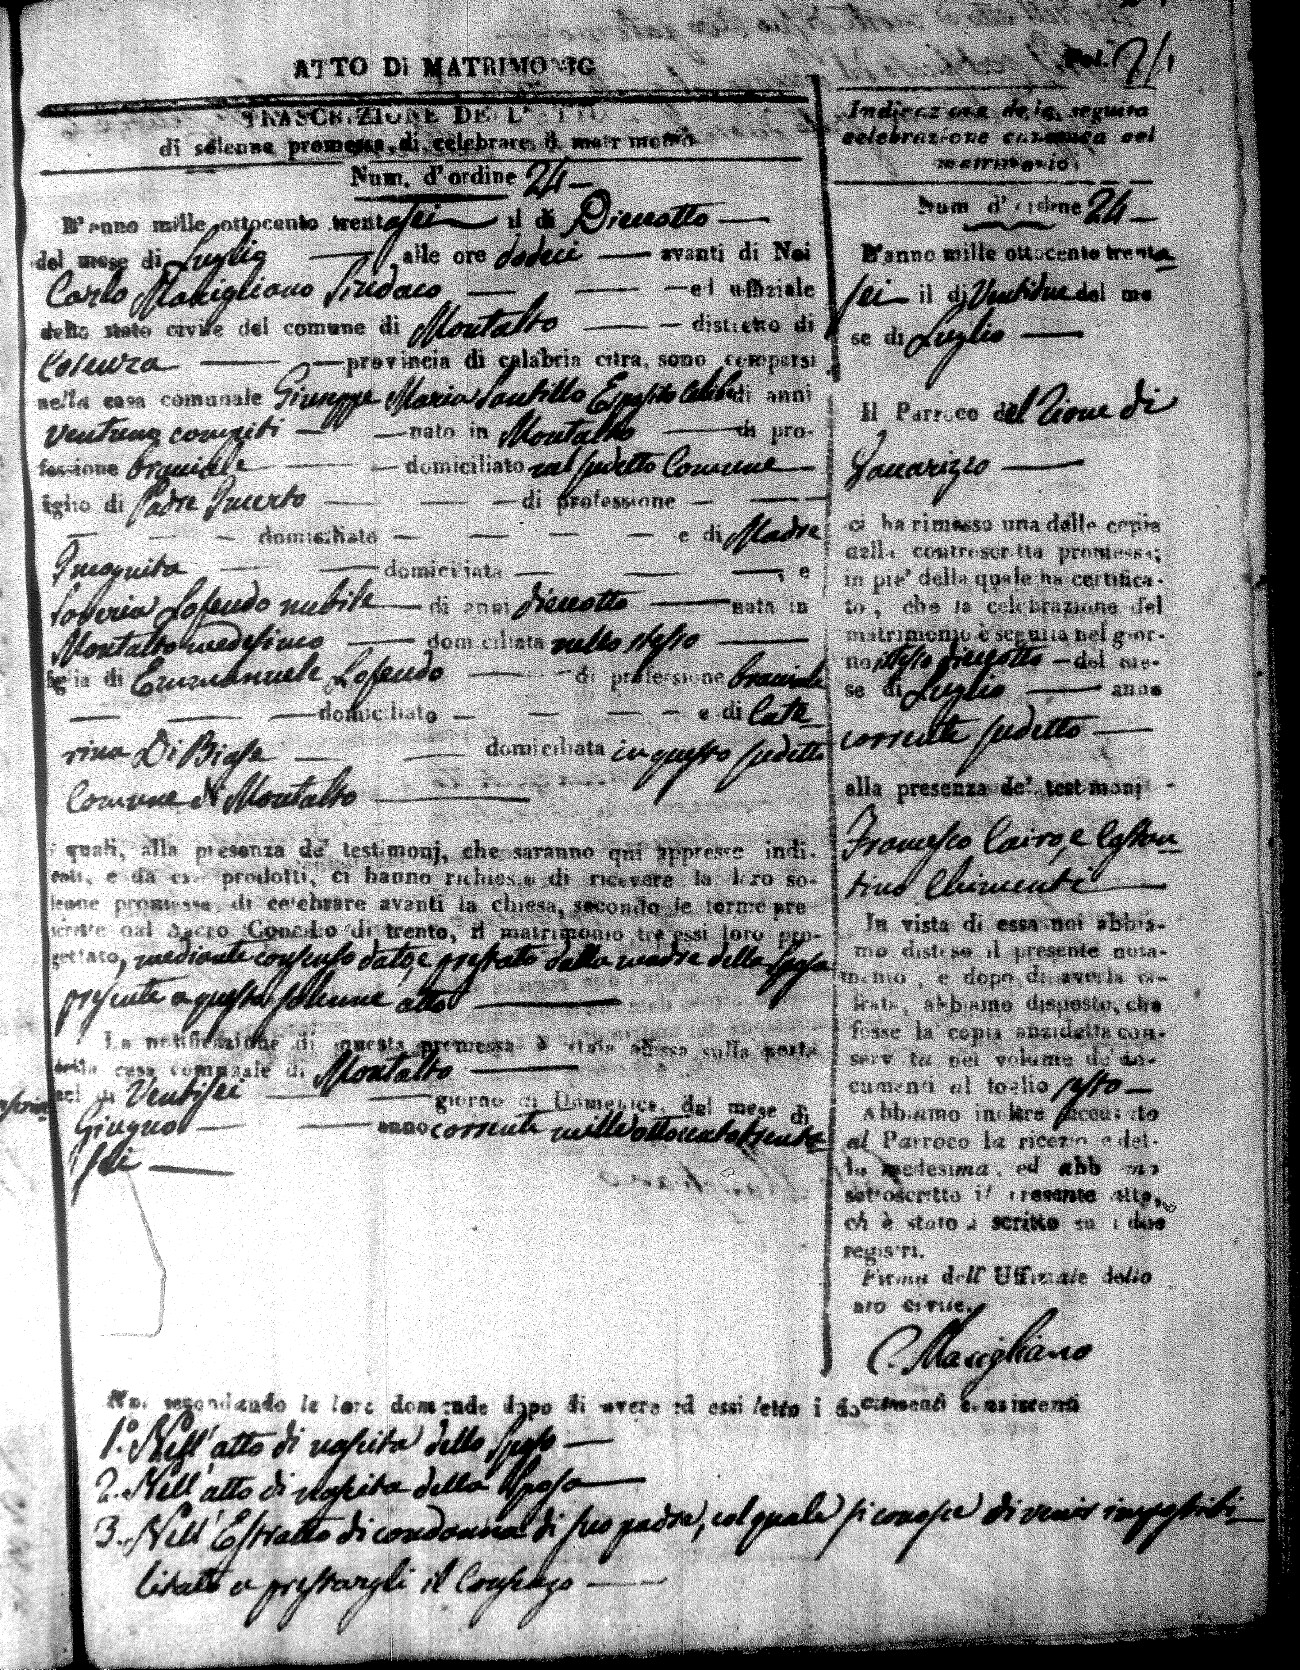 ATTO Di MATRIMONIO
TRASCRIZIONE DELL'ATTO
di solenne promessa di celebrare il matrimonio
Num. d'ordine 24
L'anno mille ottocento trentasei il dì Dieciotto
del mese di Luglio alle ore dodeci avanti di Noi
Carlo Marigliano Sindaco ed uffiziale
dello stato civile del comune di Montalto distretto di
Cosenza provincia di calabria citra, sono comparsi
nella casa comunale Giuseppe Maria Santillo Esposito Celibe di anni
ventuno compiti nato in Montalto di pro-
fessione braciale domiciliato nel sudetto Comune
figlio di Padre Incerto di professione
domiciliato e di Madre
Incognita domiciliata , e
Saveria Lofendo nubile di anni dieciotto nata in
Montalto medesimo domiciliata nello stesso
figlia di Emmanuele Lofendo di professione braciale
domiciliato e di Cate
rina Di Biase domiciliata in questo sudetto
Comune di Montalto
i quali, alla presenza de' testimonj, che saranno qui appresso indi-
cati, e da essi prodotti, ci hanno richiesto di ricevere la loro so-
lenne promessa di celebrare avanti la chiesa, secondo le forme pre
scritte dal Sacro Concilio di trento, il matrimonio tra essi loro pro-
gettato, mediante consenso dato, e prestato dalla madre della Sposa
presente a questo solenne atto
La notificazione di questa promessa è stata affissa sulla porta
della casa comunale di Montalto
nel dì Ventisei giorno di Domenica, del mese di
Giugno anno corrente mille ottocento trenta
sei
Noi secondando le loro domande dopo di avere ad essi letto i documenti consistenti
1.° Nell'atto di nascita dello Sposo
2. Nell'atto di nascita della Sposa
3. Nell'Estratto di condanna di suo padre, col quale si conosce di venir impossibi-
litato a prestargli il Consenzo
Fol.
Indicazione della seguita
celebrazione canonica del
matrimonio.
Num d'ordine 24
L'anno mille ottocento trenta
sei il dì Ventidue del me
se di Luglio
Il Parroco del Rione di
ci ha rimesso una delle copie
della controscritta promessa;
in piè della quale ha certifica-
to, che la celebrazione del
matrimonio è seguita nel gior-
no stesso dieciotto del me-
se di Luglio anno
corrente sudetto
alla presenza de' testimonj
Francesco Cairo, e Costan
tino Chimenti
In vista di essa noi abbia-
mo disteso il presente nota-
mento, e dopo di averla ci-
frata, abbiamo disposto, che
fosse la copia anzidetta con-
servata nel volume de' do-
cumenti al foglio sesto
Abbiamo inoltre accusato
al Parroco la ricezione del-
la medesima, ed abbiamo
sottoscritto il presente atto,
ch'è stato iscritto su i due
registri.
Firma dell'Uffiziale dello
stato civile.
C. Marigliano